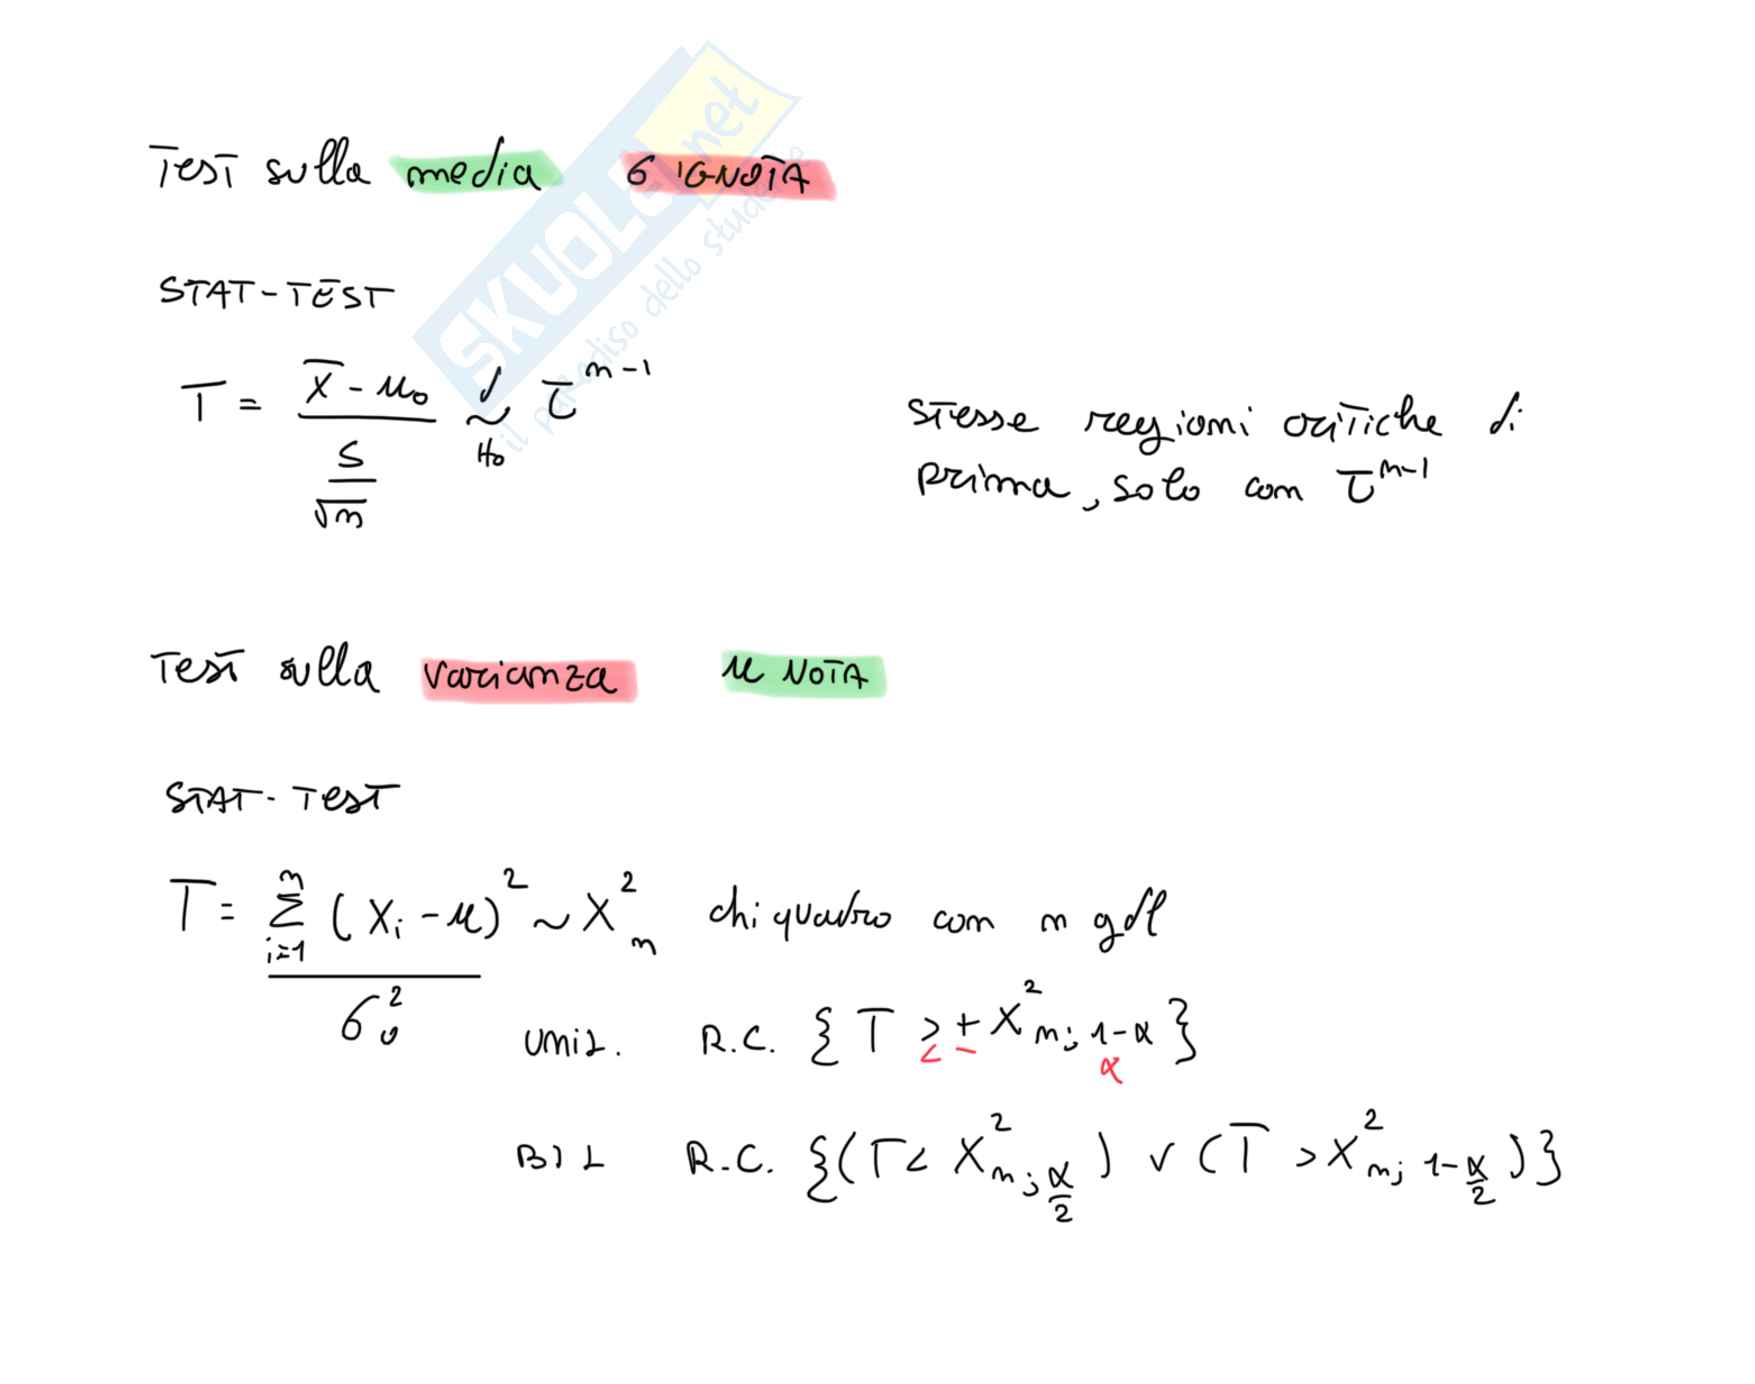 Test sulla media σ IGNOTA
STAT-TEST
T = (X̄ - μ₀) / (S / √n) ~ᵈ_H₀ τⁿ⁻¹
stesse regioni critiche di
prima, solo con τⁿ⁻¹
Test sulla varianza μ NOTA
STAT-TEST
T = Σᵢ₌₁ⁿ (Xᵢ - μ)² / σ₀² ~ X²ₙ chi quadro con n gdl
Unil. R.C. { T > + X²ₙ; 1-α }
< - α
BIL R.C. {(T < X²ₙ; α/2) ∨ (T > X²ₙ; 1-α/2)}
SKUOLA.net
il paradiso dello studente